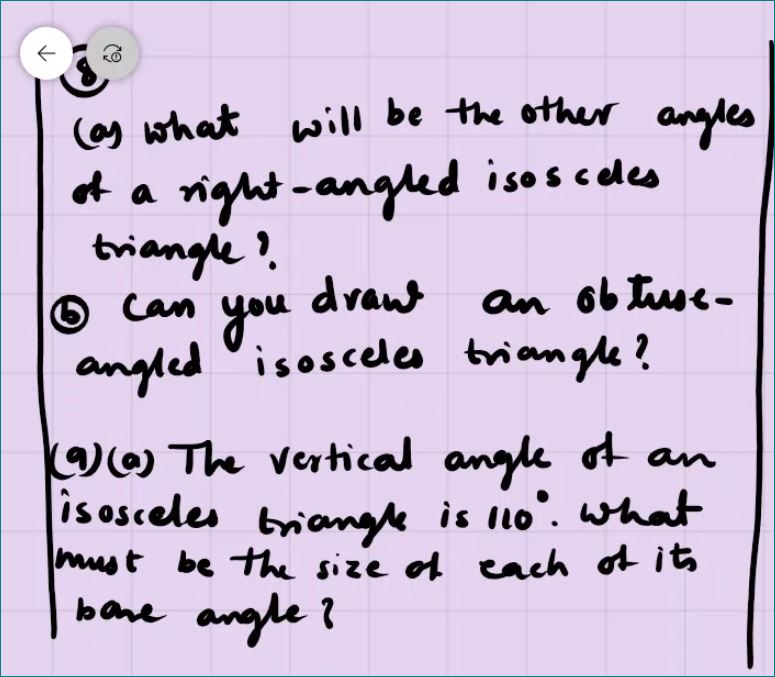 8
(a) what will be the other angles
of a right-angled isosceles
triangle?
(b) Can you draw an obtuse-
angled isosceles triangle?
(9)(a) The vertical angle of an
isosceles triangle is 110°. What
must be the size of each of its
base angle?